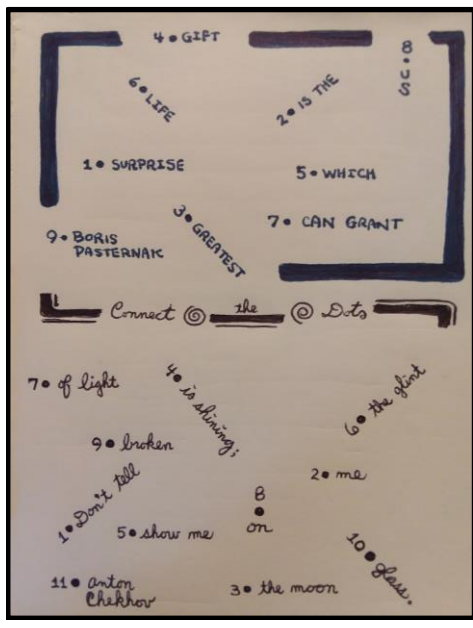 4 • GIFT
8 • US
6 • LIFE
2 • IS THE
1 • SURPRISE
5 • WHICH
3 • GREATEST
7 • CAN GRANT
9 • BORIS
PASTERNAK
Connect the Dots
7 • of light
4 • is shining;
6 • the glint
9 • broken
2 • me
1 • Don't tell
8 • on
5 • show me
10 • glass.
11 • anton
Chekhov
3 • the moon